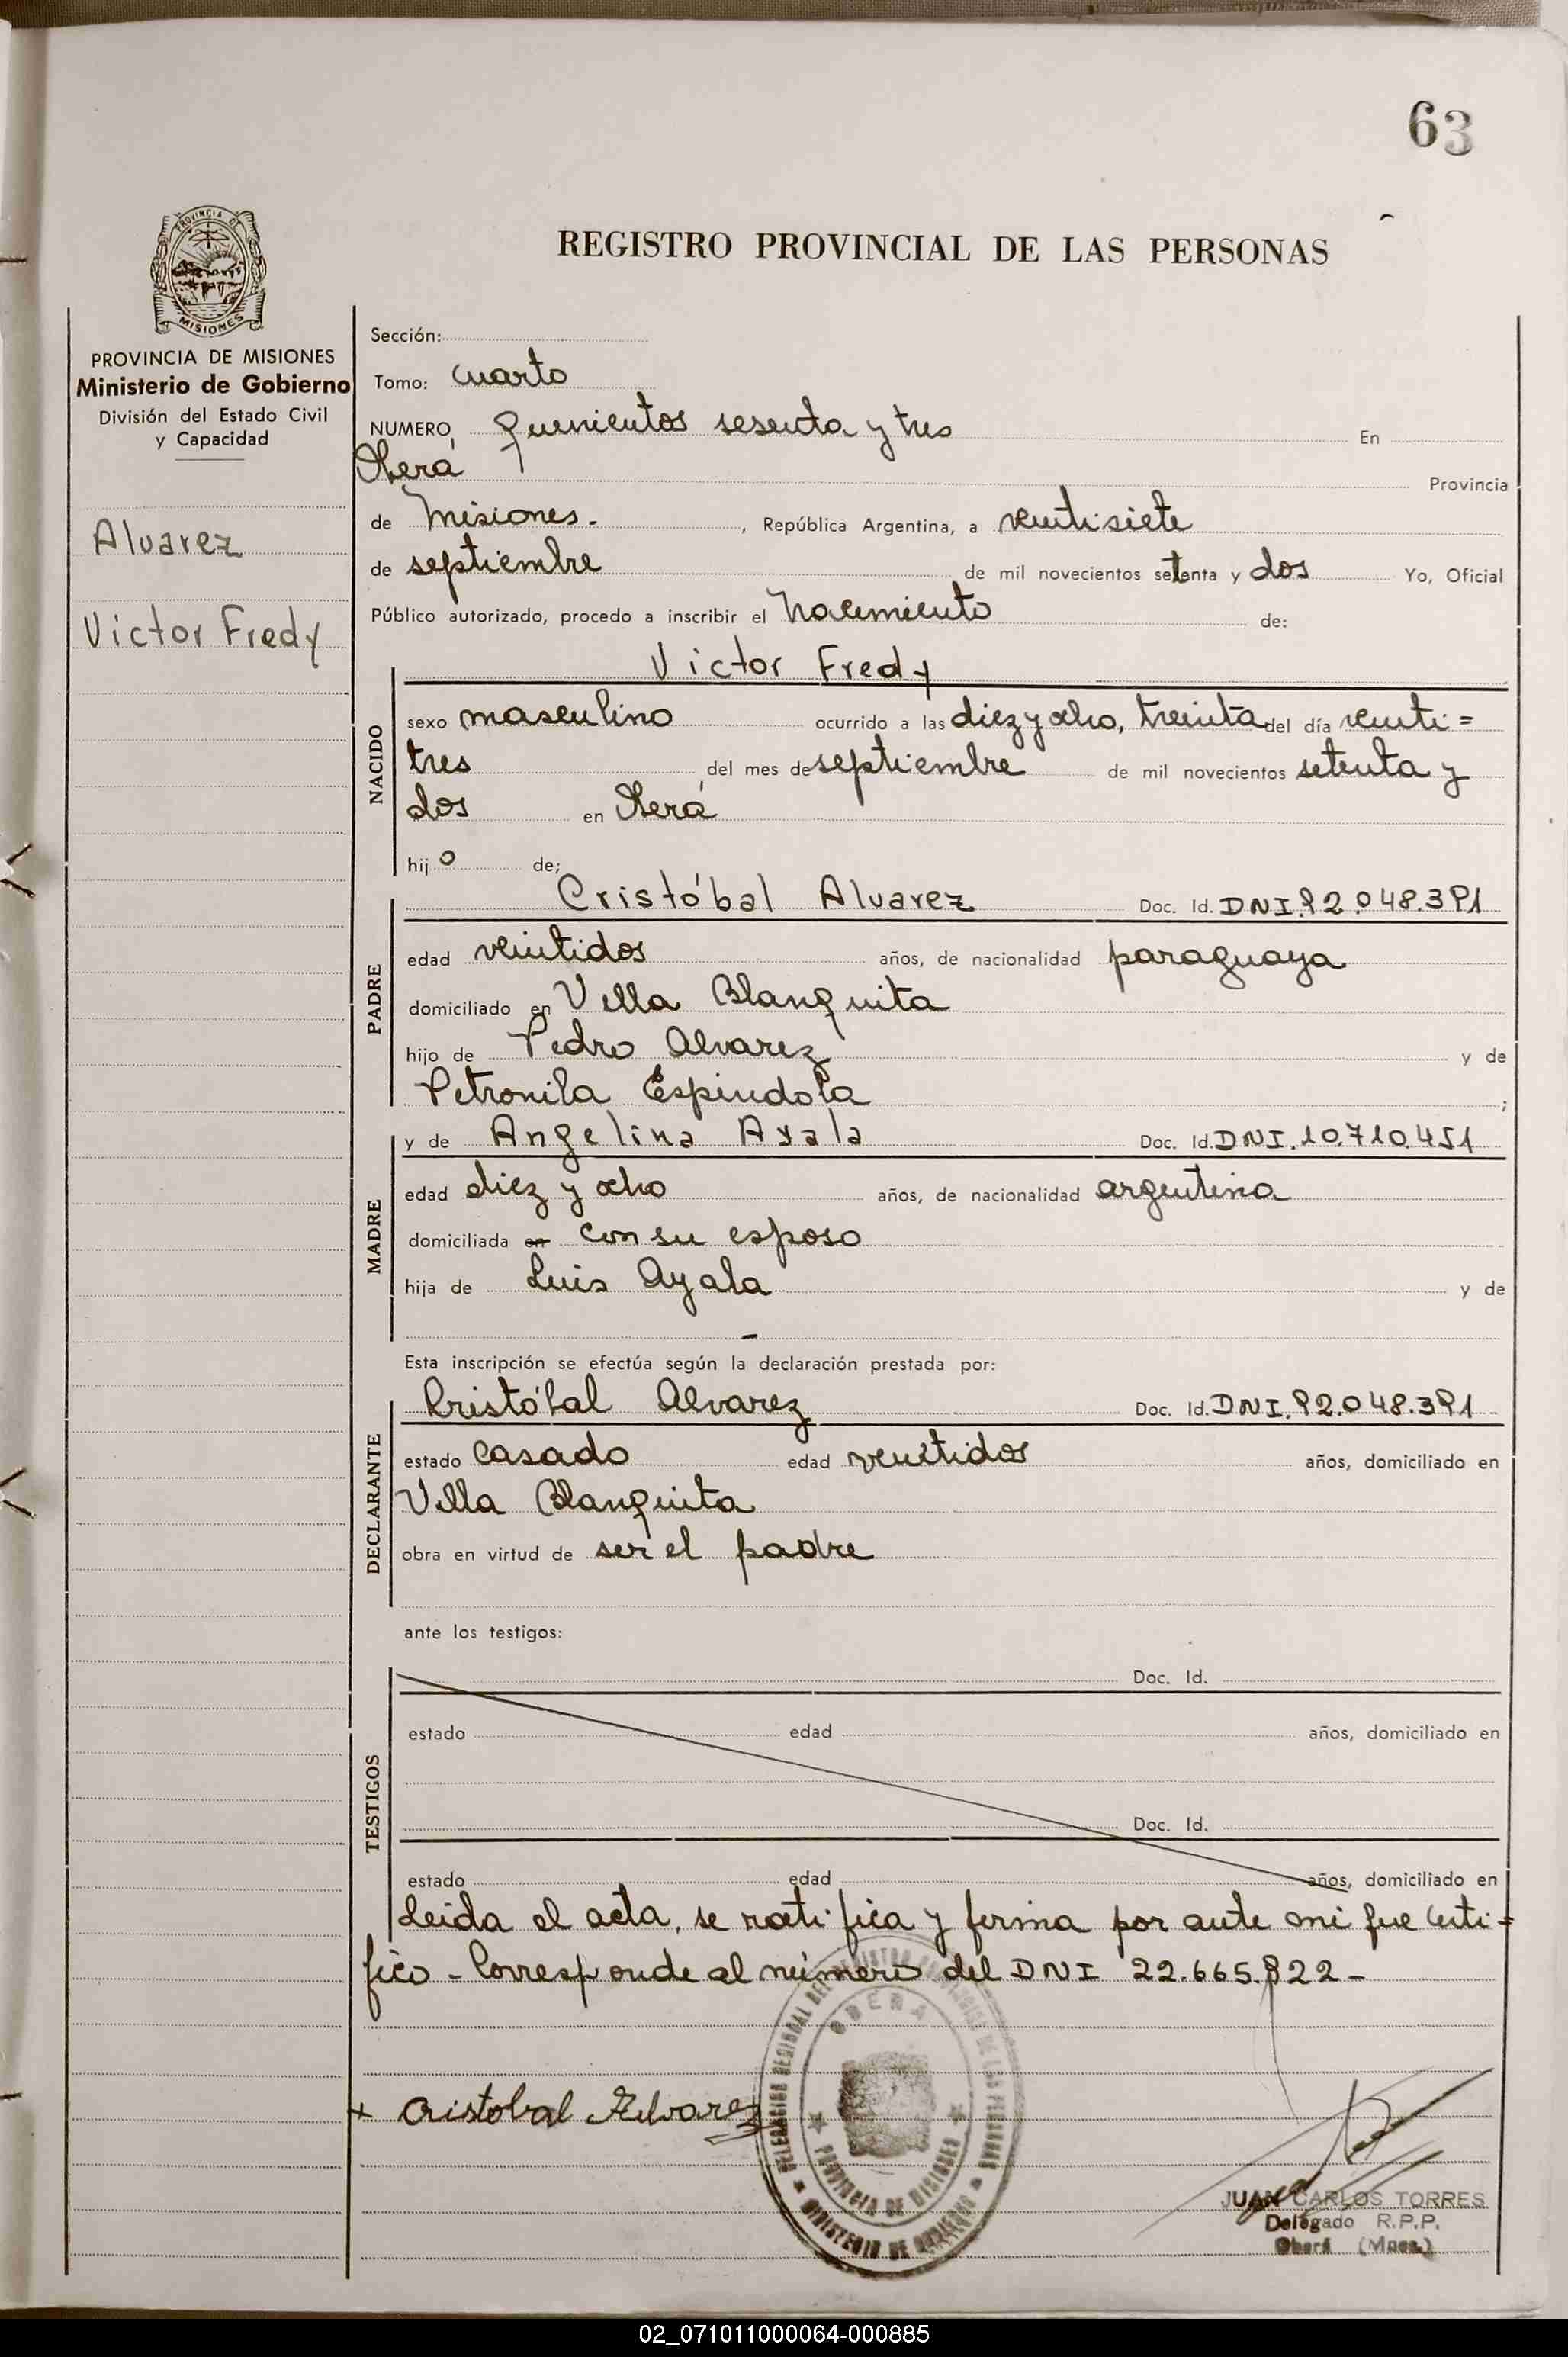 63
REGISTRO PROVINCIAL DE LAS PERSONAS
PROVINCIA DE
MISIONES
PROVINCIA DE MISIONES
Ministerio de Gobierno
División del Estado Civil
y Capacidad
Alvarez
Victor Fredy
Sección:
Tomo: Cuarto
NUMERO, quinientos sesenta y tres En
Oberá Provincia
de Misiones. , República Argentina, a veintisiete
de septiembre de mil novecientos setenta y dos Yo, Oficial
Público autorizado, procedo a inscribir el Nacimiento de:
Victor Fredy
NACIDO
sexo masculino ocurrido a las diez y ocho, treinta del día veinti=
tres del mes de septiembre de mil novecientos setenta y
dos en Oberá
hij o de;
Cristóbal Alvarez Doc. Id. DNI.92.048.391
PADRE
edad veintidos años, de nacionalidad paraguaya
domiciliado en Villa Blanquita
hijo de Pedro Alvarez y de
Petronila Espindola ;
y de Angelina Ayala Doc. Id. DNI.10.710.451
MADRE
edad diez y ocho años, de nacionalidad argentina
domiciliada en con su esposo
hija de Luis Ayala y de
-
Esta inscripción se efectúa según la declaración prestada por:
Cristóbal Alvarez Doc. Id. DNI.92.048.391
DECLARANTE
estado casado edad veintidos años, domiciliado en
Villa Blanquita
obra en virtud de ser el padre
ante los testigos:
Doc. Id.
TESTIGOS
estado edad años, domiciliado en
Doc. Id.
estado edad años, domiciliado en
Leida el acta, se ratifica y firma por ante mi que Certi=
fico - Corresponde al número del DNI 22.665.822 -
DELEGACION REGIONAL DEL REGISTRO PROVINCIAL DE LAS PERSONAS
OBERA
PROVINCIA DE MISIONES
MINISTERIO DE GOBIERNO
x Cristobal Alvarez
JUAN CARLOS TORRES
Delegado R.P.P.
Oberá (Mnes.)
02_071011000064-000885